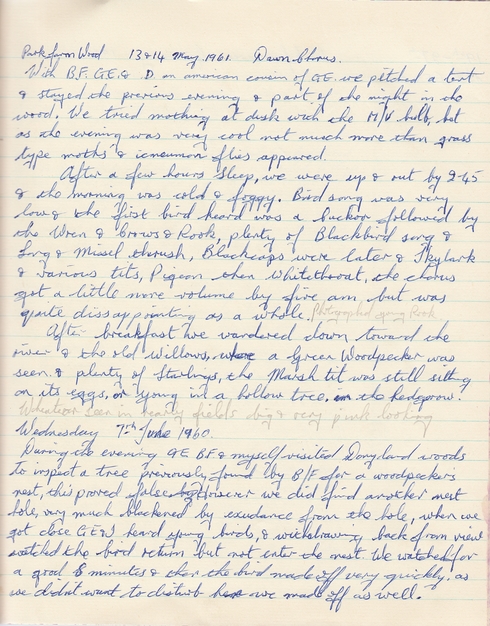 Park farm Wood 13 & 14 May 1961. Dawn Chorus.
With B.F. G.E. & D. an american cousin of GE. we pitched a tent
& stayed the previous evening & part of the night in the
wood. We tried mothing at dusk with the M/V bulb, but
as the evening was very cool not much more than grass
type moths & icneumon flies appeared.
After a few hours sleep, we were up & out by 2-45
& the morning was cold & foggy. Bird song was very
low & the first bird heard was a Cuckoo followed by
the Wren & Crows & Rook, plenty of Blackbird song &
Song & Missel thrush, Blackcaps were later & Skylark
& various tits, Pigeon then Whitethroat, the chorus
got a little more volume by five am, but was
quite dissapponting as a whole. Photographed young Rook
After breakfast we wandered down toward the
river & the old Willows, where a Green Woodpecker was
seen & plenty of Starlings, the Marsh tit was still sitting
on its eggs, or young in a hollow tree, in the hedgerow.
Wheatear seen in nearby fields big & very pink looking
Wednesday 7th June 1960.
During the evening GE BF & myself visited Donyland woods
to inspect a tree previously found by B/F for a woodpeckers
nest, this proved false. However we did find another nest
hole, very much blackened by exudance from the hole, when we
got close GE & I heard young birds, & withdrawing back from view
watched the bird return but not enter the nest. We watched for
a good 5 minutes & then the bird made off very quickly, as
we didn't want to disturb her we made off as well.